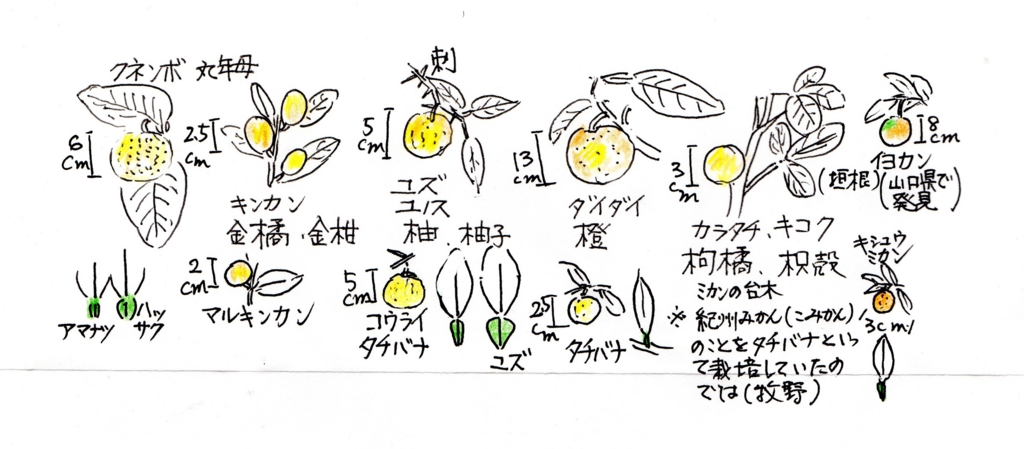 クネンボ 九年母
6
cm
2.5
cm
キンカン
金橘、金柑
刺
5
cm
ユズ
ユノス
柚、柚子
13
cm
ダイダイ
橙
3
cm
カラタチ、キコク
枸橘、枳殻
(垣根)
ミカンの台木
8
cm
イヨカン
(山口県で
発見)
アマナツ
ハッ
サク
2
cm
マルキンカン
5
cm
コウライ
タチバナ
ユズ
2.5
cm
タチバナ
※紀州みかん(こみかん)
のことをタチバナといっ
て栽培していたの
では(牧野)
キシュウ
ミカン
3cm